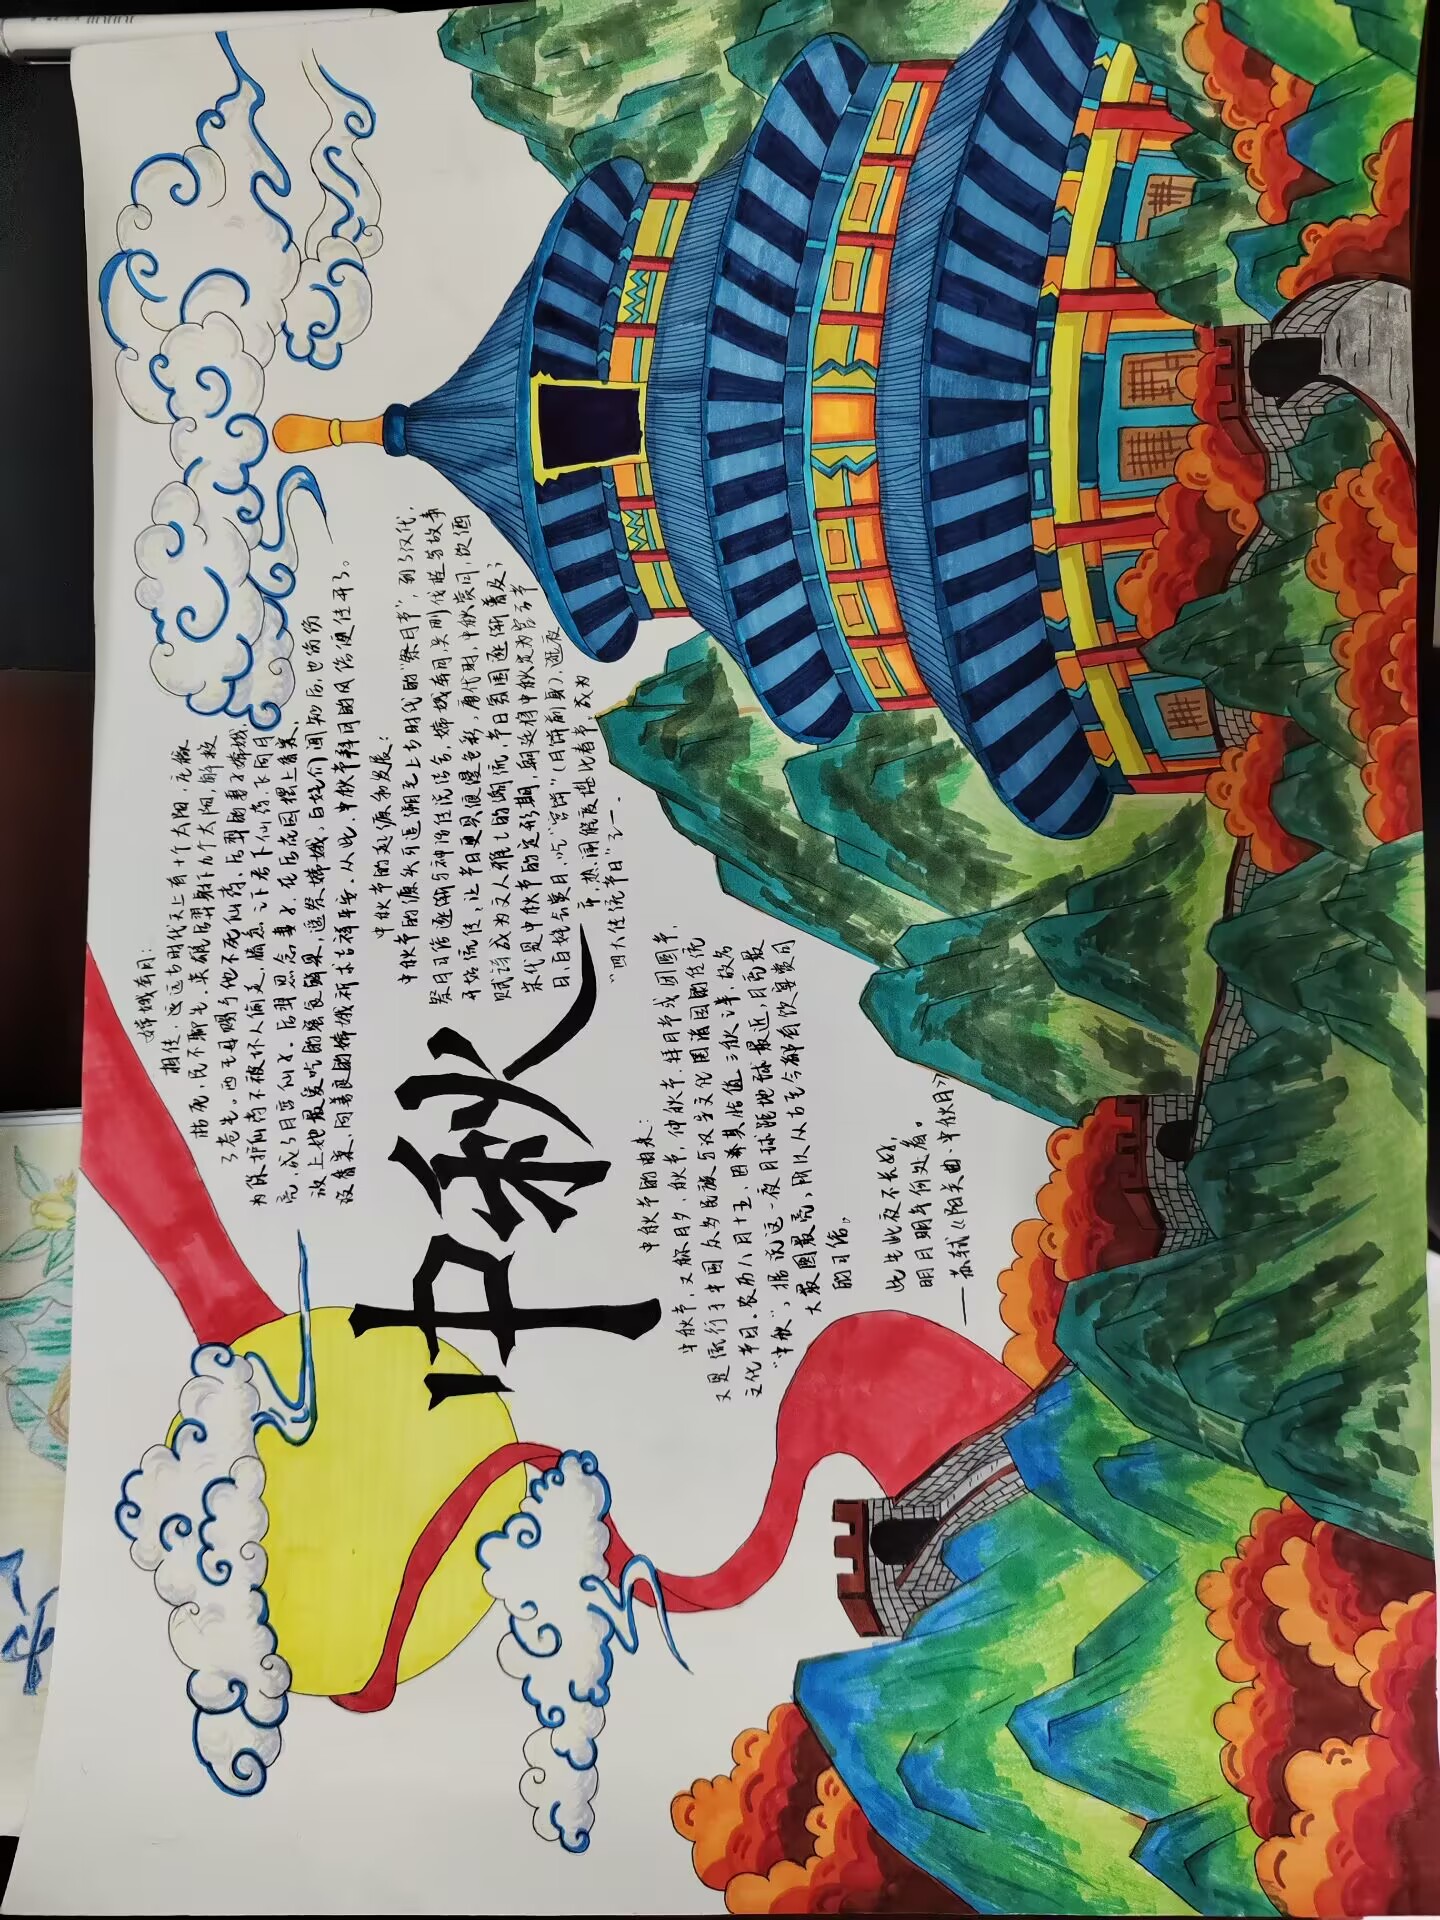 嫦娥奔月:
相传,远古时代天上有十个太阳,庄稼
枯死,民不聊生,英雄后羿射下九个太阳,解救
了苍生。西王母赐予他不死仙药,后羿的妻子嫦娥,
为保护仙药不被坏人偷走,情急之下吞下仙药,飞向月
亮,成了月宫仙子。后羿思念妻子,在后花园摆上香案,
放上她最爱吃的蜜食鲜果,遥祭嫦娥,百姓们闻知后,也纷纷
设香案,向善良的嫦娥祈求吉祥平安。从此,中秋节拜月的风俗便传开了。
中秋
中秋节的起源和发展:
中秋节的源头可追溯至上古时代的"祭月节",到了汉代,
祭月习俗逐渐与神话传说结合,嫦娥奔月、吴刚伐桂等故事
开始流传,让节日更具浪漫色彩,唐代时,中秋赏月、饮酒
赋诗成为文人雅士的潮流,节日氛围逐渐普及;
宋代是中秋节的定形期,朝廷将中秋定为官方节
日,百姓会赏月、吃"宫饼"(月饼前身)、逛夜
市,热闹程度堪比春节,成为
"四大传统节日"之一.
中秋节的由来:
中秋节,又称月夕、秋节、仲秋节、拜月节或团圆节,
又是流行于中国众多民族与汉字文化圈诸国的传统
文化节日。农历八月十五,因其恰值三秋之半,故名
"中秋",据说这一夜月球距地球最近,月亮最
大最圆最亮,所以从古至今都有饮宴赏月
的习俗。
此生此夜不长好,
明月明年何处看。
——苏轼《阳关曲·中秋月》